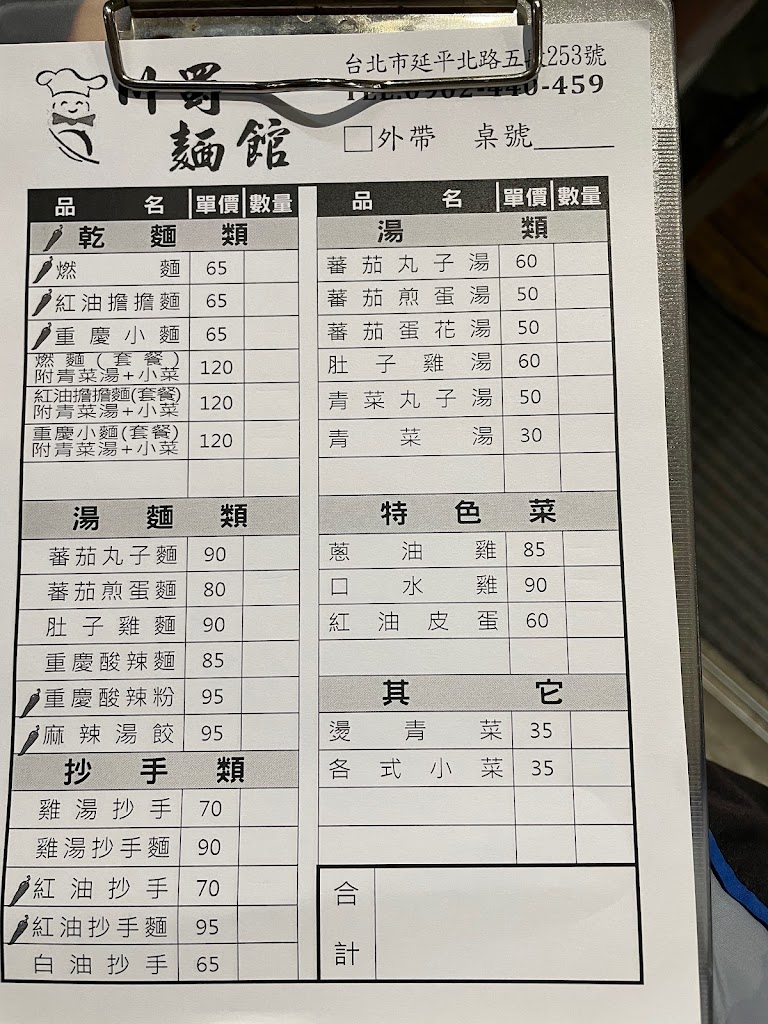 川蜀
麵館
台北市延平北路五段253號
TEL:0982-440-459
外帶 桌號
品名 單價 數量
乾麵類
燃麵 65
紅油擔擔麵 65
重慶小麵 65
燃麵(套餐)
附青菜湯+小菜 120
紅油擔擔麵(套餐)
附青菜湯+小菜 120
重慶小麵(套餐)
附青菜湯+小菜 120
湯麵類
蕃茄丸子麵 90
蕃茄煎蛋麵 80
肚子雞麵 90
重慶酸辣麵 85
重慶酸辣粉 95
麻辣湯餃 95
抄手類
雞湯抄手 70
雞湯抄手麵 90
紅油抄手 70
紅油抄手麵 95
白油抄手 65
品名 單價 數量
湯類
蕃茄丸子湯 60
蕃茄煎蛋湯 50
蕃茄蛋花湯 50
肚子雞湯 60
青菜丸子湯 50
青菜湯 30
特色菜
蔥油雞 85
口水雞 90
紅油皮蛋 60
其它
燙青菜 35
各式小菜 35
合計